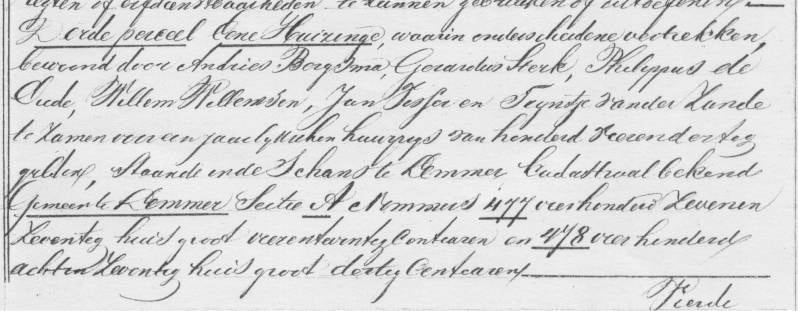 regten of erfdienstbaarheden te kunnen gebruiken of uitoefenen
Derde perceel Eene Huizinge, waarin onderscheidene vertrekken,
bewoond door Andries Bergsma, Gerardus Sterk, Philippus de
Oude, Willem Willemsen, Jan Visser en Tryntje van der Zande
te zamen voor een jaarlykschen huurprys van honderd veerendertig
gulden, staande in de Schans te Lemmer Cadastraal bekend
Gemeente Lemmer Sectie A Nommers 477 vierhonderd Zeven en
Zeventig huis groot vierentwintig Centiaren en 478 vierhonderd
acht en Zeventig huis groot dertig Centiaren
Vierde